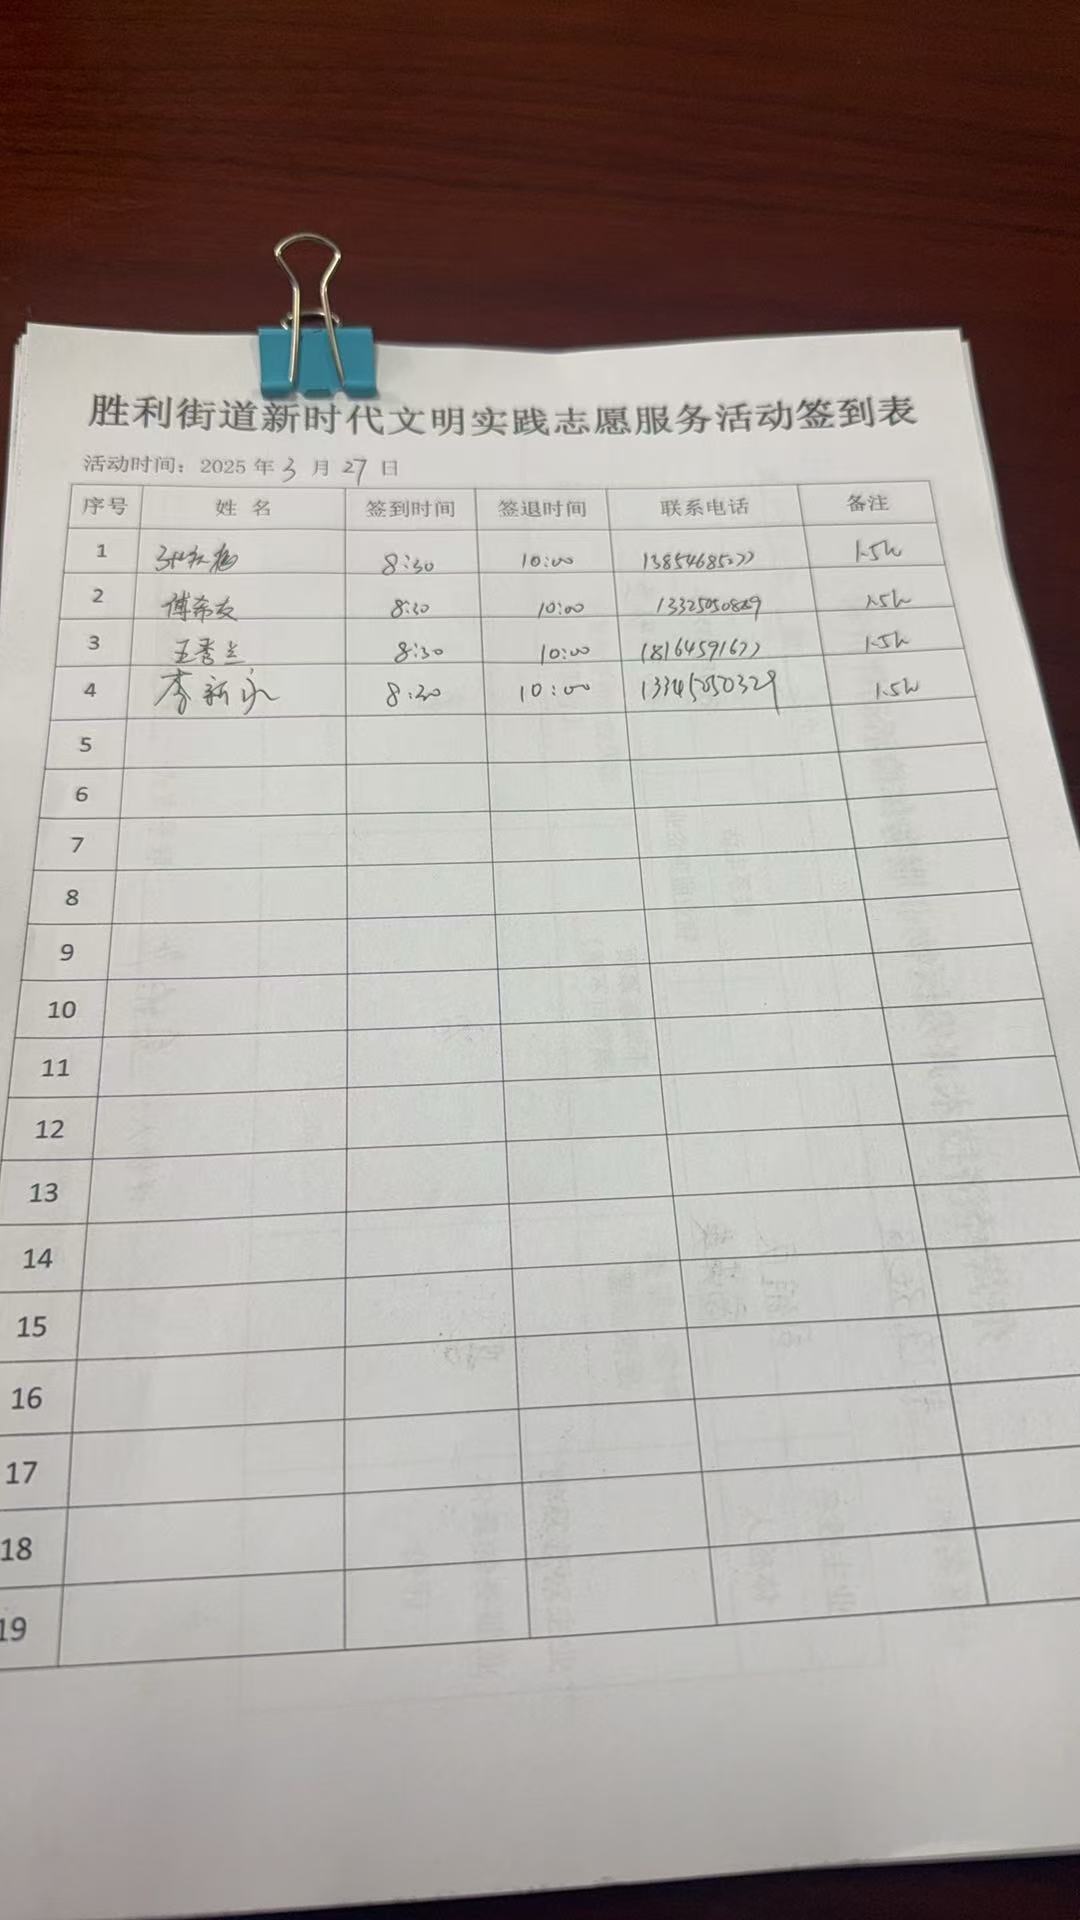 胜利街道新时代文明实践志愿服务活动签到表
活动时间：2025年3月27日
序号 姓名 签到时间 签退时间 联系电话 备注
1 8:30 10:00 13854685077 1.5h
2 傅希友 8:30 10:00 1.5h
3 王秀兰 8:30 10:00 18164591677 1.5h
4 李新永 8:30 10:00 13345050329 1.5h
5
6
7
8
9
10
11
12
13
14
15
16
17
18
19